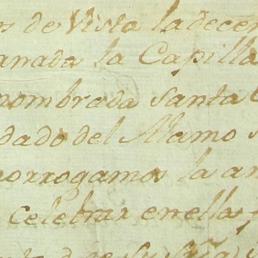 de Vista la decen
anada la Capilla
nombrada Santa
dado del Alamo
orrogamos la
celebrar en ella